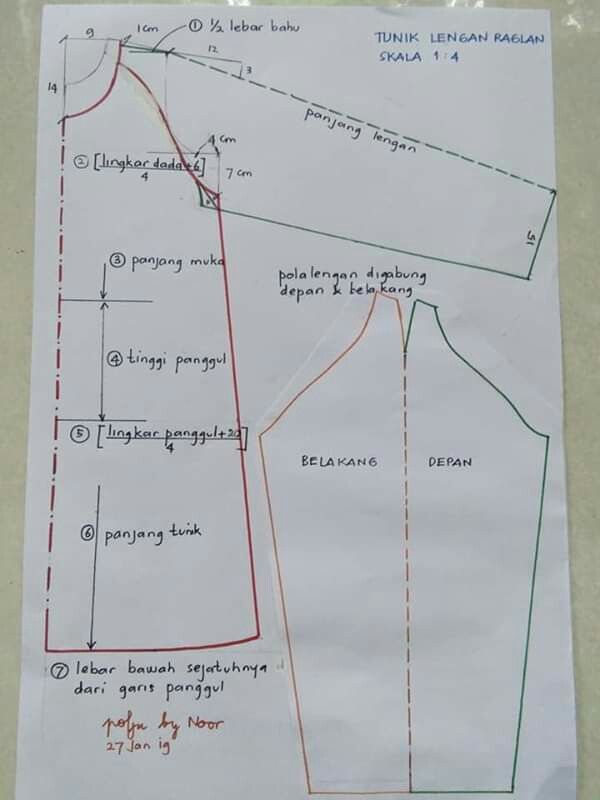 ① ½ lebar bahu
TUNIK LENGAN RAGLAN
SKALA 1:4
9
1cm
12
3
14
panjang lengan
4 cm
② [lingkar dada+6]
4
7 cm
15
③ panjang muka
pola lengan digabung
depan & belakang
④ tinggi panggul
⑤ [lingkar panggul+20]
4
BELAKANG
DEPAN
⑥ panjang tunik
⑦ lebar bawah sejatuhnya
dari garis panggul
by Noor
27 Jan 19